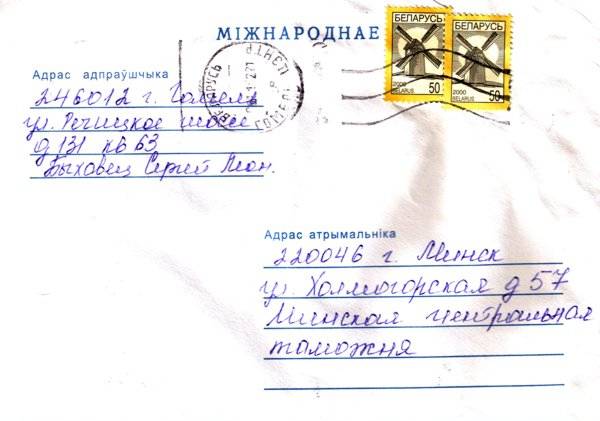 МІЖНАРОДНАЕ
БЕЛАРУСЬ
БЕЛАРУСЬ
2000
BELARUS
50
2000
BELARUS
50
Адрас адпраўшчыка
246012 г. Гомель
ул. Речицкое шоссе
д 131 кв 63
Быховец Сергей
Адрас атрымальніка
220046 г. Минск
ул. Холмогорская д 57
Минская центральная
таможня